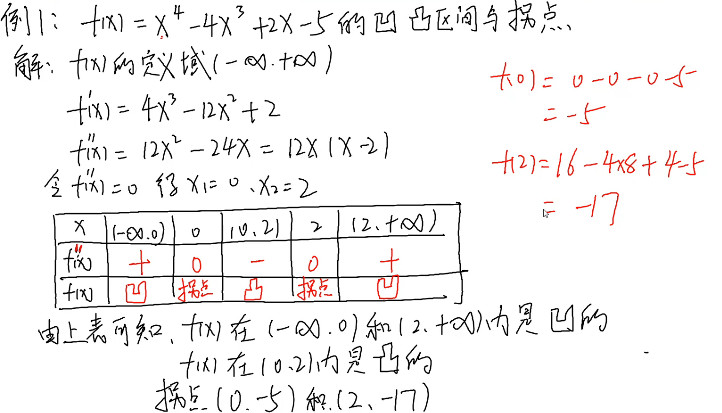 例1: f(x) = x⁴-4x³+2x-5的凹凸区间与拐点、
解: f(x)的定义域(-∞.+∞)
f'(x) = 4x³-12x²+2
f''(x) = 12x²-24x = 12x(x-2)
令f''(x)=0 得 x₁=0、x₂=2
x (-∞.0) 0 (0.2) 2 (2.+∞)
f''(x) + 0 - 0 +
f(x) 凹 拐点 凸 拐点 凹
由上表可知, f(x)在(-∞.0)和(2.+∞)内是凹的
f(x)在(0.2)内是凸的
拐点(0.-5)和(2、-17)
f(0) = 0-0-0-5
= -5
f(2)=16-4×8+4-5
= -17